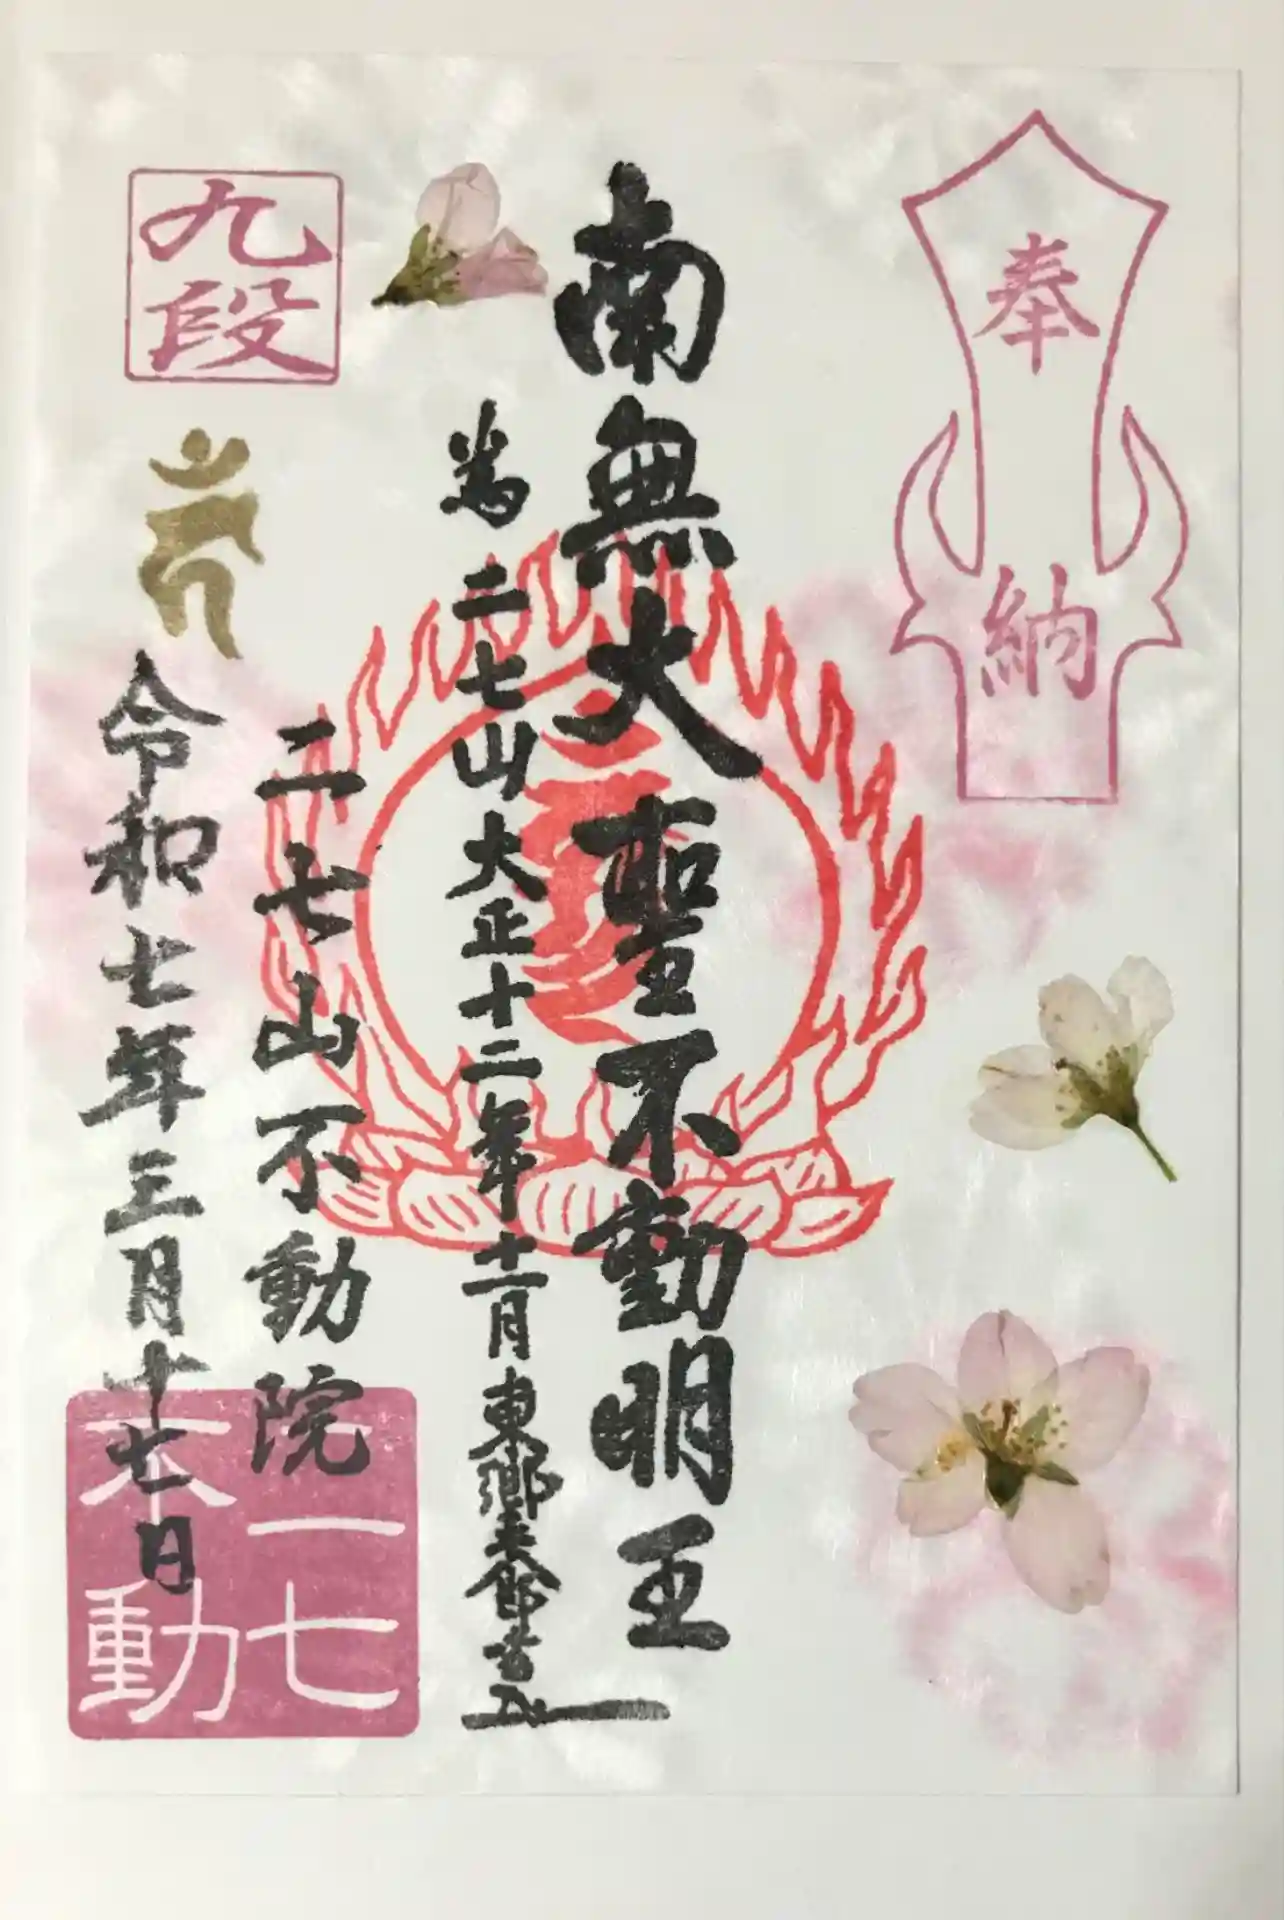 奉納
南無大聖不動明王
為二七山大正十二年十一月東郷
二七山不動院
九段
令和七年三月十七日
二七不動